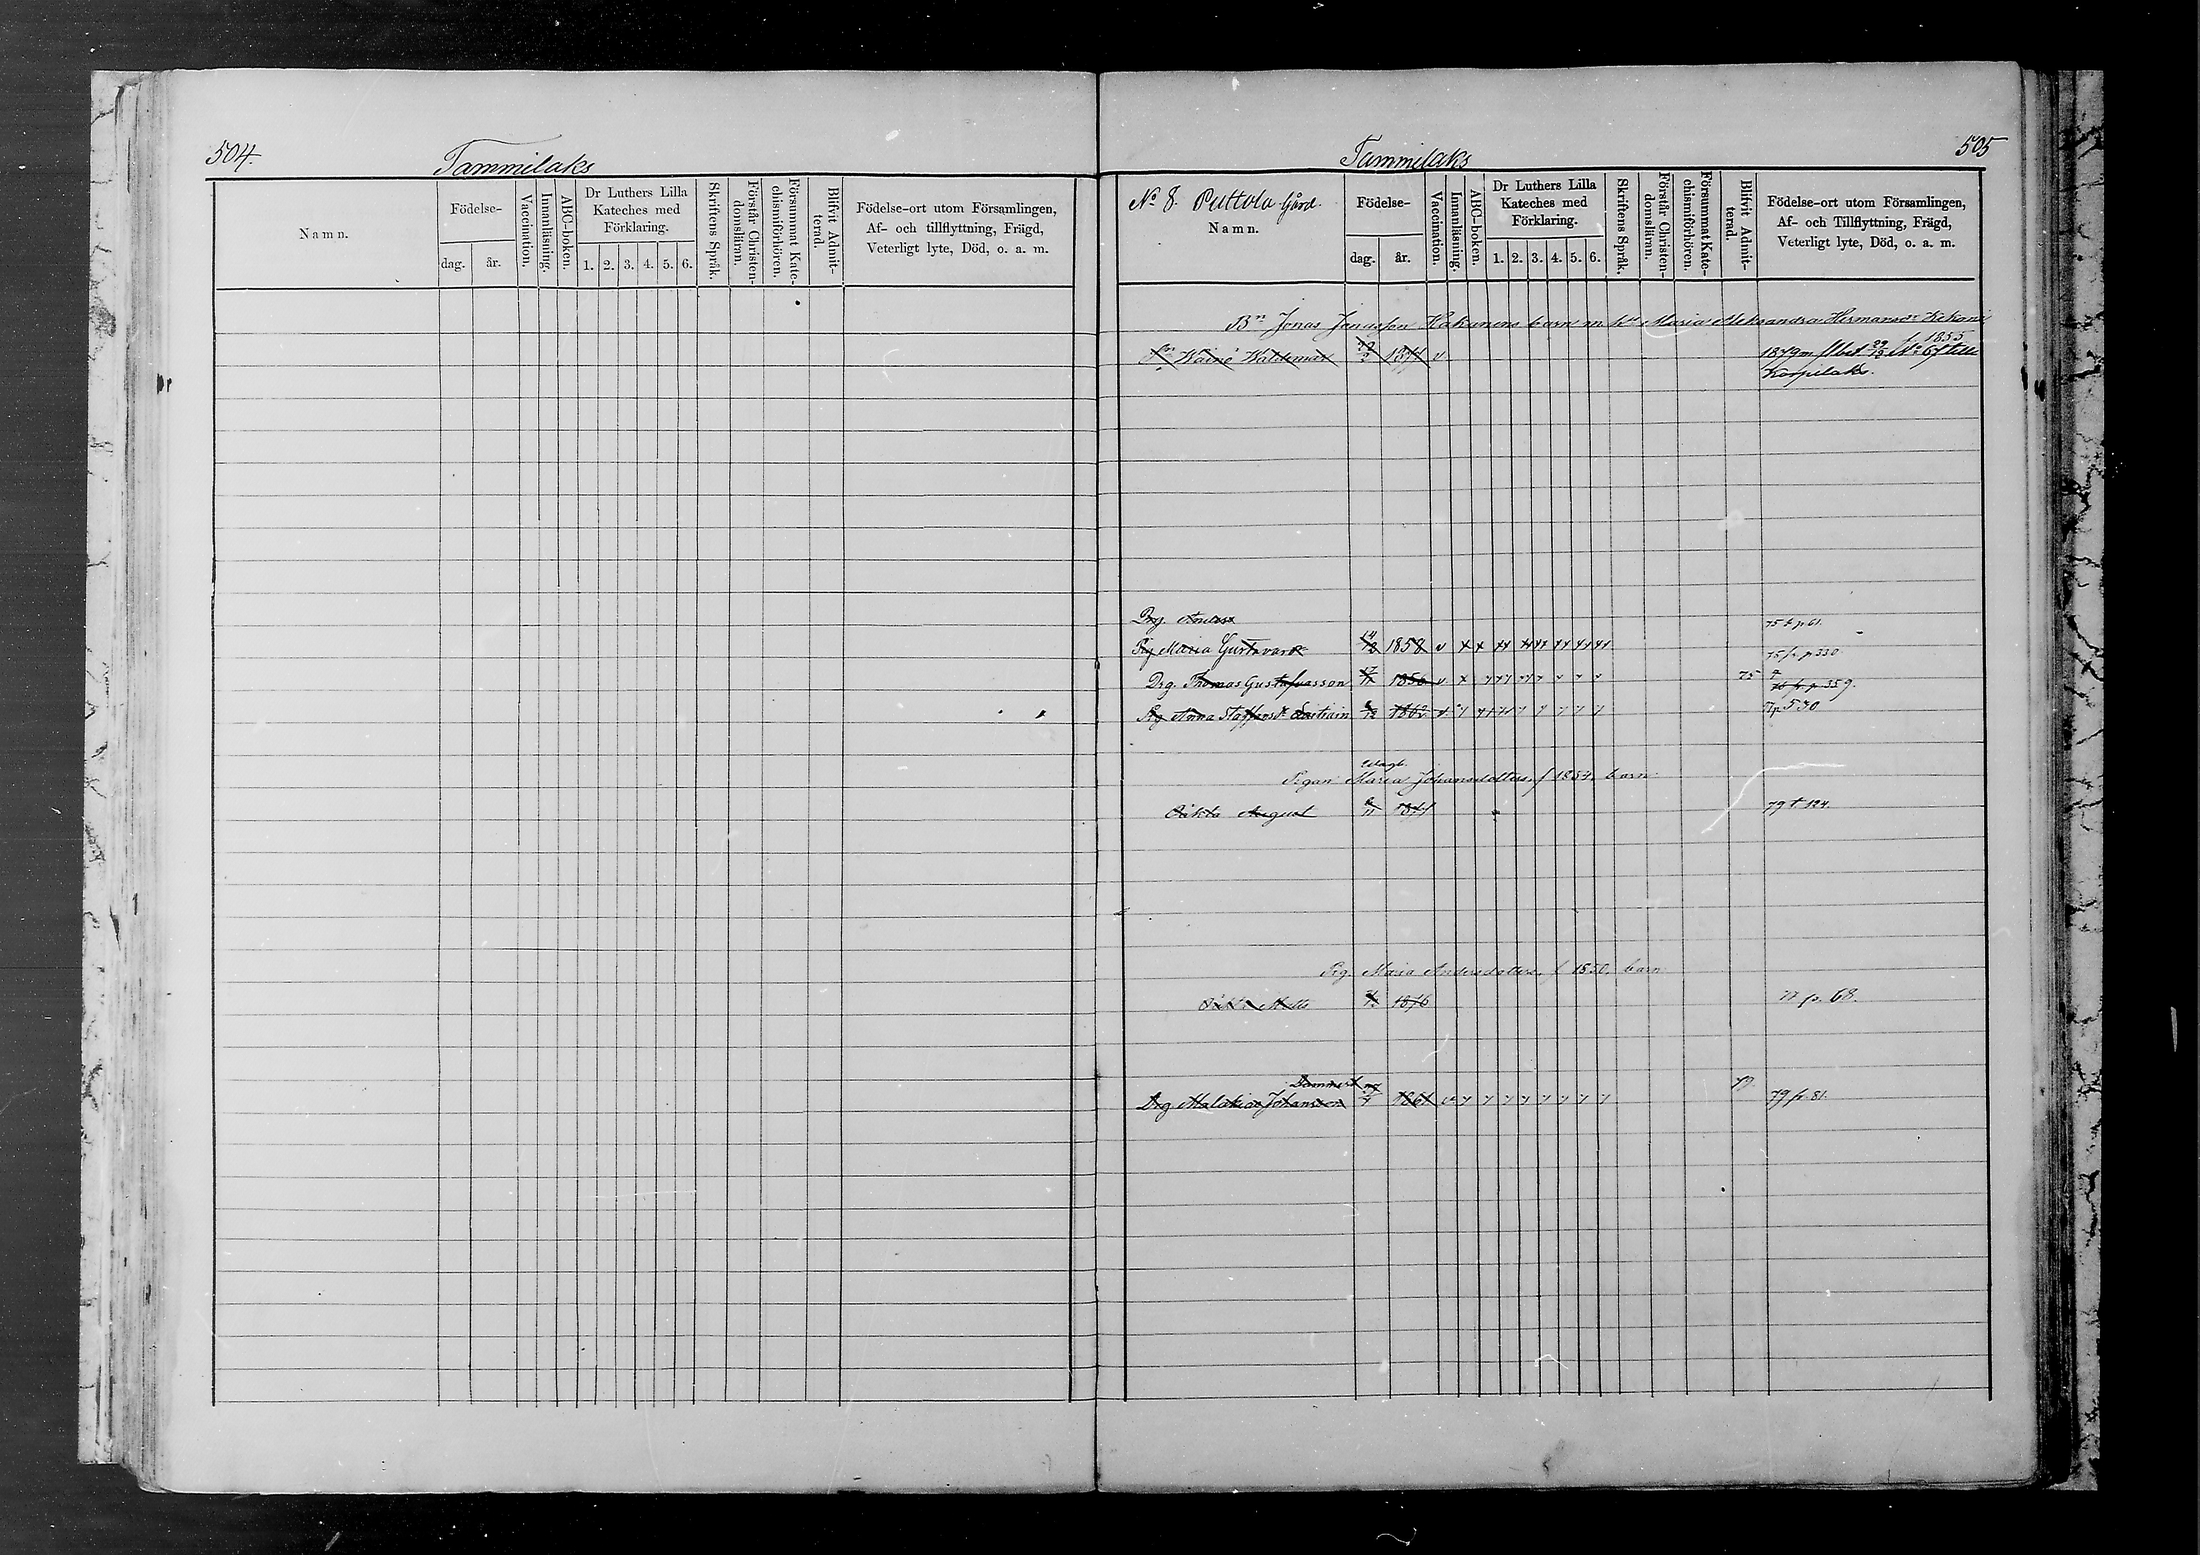 504.
Tammilaks
Namn.
Födelse-
dag. år.
Vaccination.
Innanläsning.
ABC-boken.
Dr Luthers Lilla
Kateches med
Förklaring.
1. 2. 3. 4. 5. 6.
Skriftens Språk.
Förstår Christen-
domsläran.
Försummat Kate-
chismiförhören.
Blifvit Admit-
terad.
Födelse-ort utom Församlingen,
Af- och tillflyttning, Frägd,
Veterligt lyte, Död, o. a. m.
Tammilaks
505
No 8. Pulttola Gård.
Namn.
Födelse-
dag. år.
Vaccination.
Innanläsning.
ABC-boken.
Dr Luthers Lilla
Kateches med
Förklaring.
1. 2. 3. 4. 5. 6.
Skriftens Språk.
Förstår Christen-
domsläran.
Försummat Kate-
chismiförhören.
Blifvit Admit-
terad.
Födelse-ort utom Församlingen,
Af- och Tillflyttning, Frägd,
Veterligt lyte, Död, o. a. m.
Bn Jonas Jonasson Kakanens barn m. hu Maria Aleksandra Hermansdr Kekoni
f. 1855
Wäinö Waldemar 1877 v
1879 m flbet 29/12 No 67 till
Korpilaks.
Drg. Anders 75 t. p. 61.
Pig Maria Gustavsdr 14/12 1858 v x x 75 fr. p. 330
Drg. Thomas Gustafvasson 17/11 1856 v. x 75 76 fr. p. 359.
Pig Anna Staffansdr 1862 v. p 530
Pigan Maria Johansdotters f 1834. barn
Oäkta August 1877 79 t 124.
Pig Maria Andersdotters f 1850. barn
Oäkta 1876 p. 68.
Drg Malakias Johansson 1861 79 79 fr. 81.